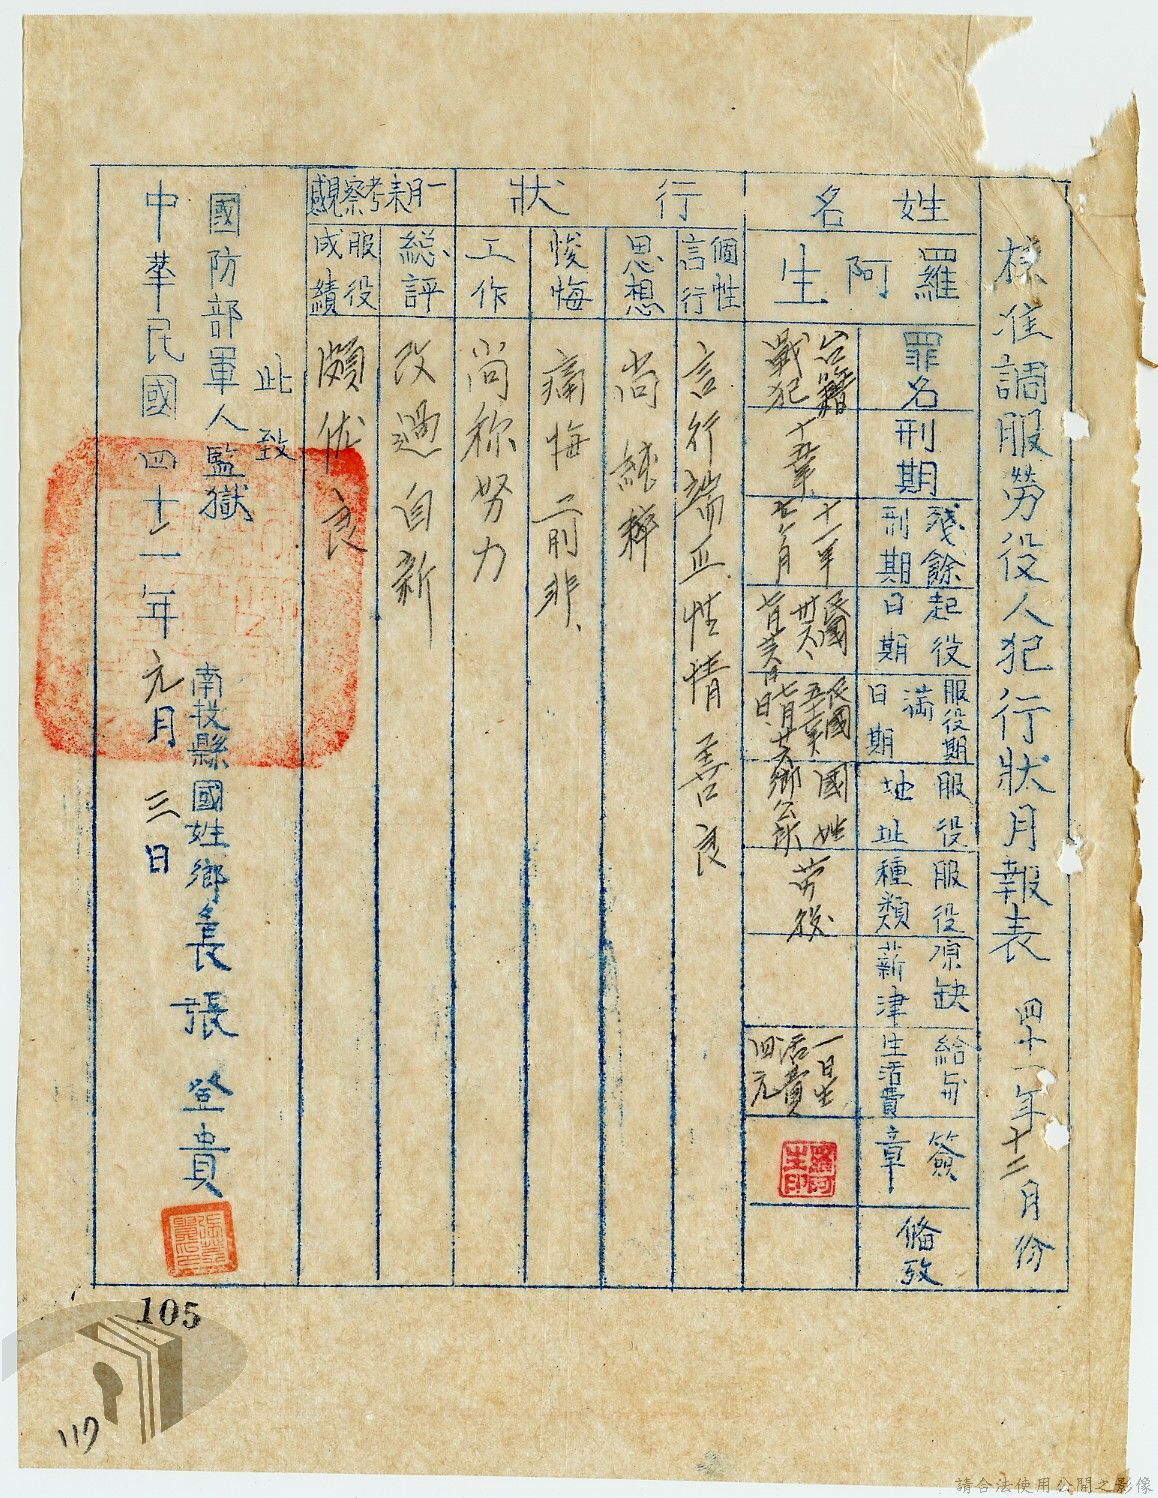 核准調服勞役人犯行狀月報表 四十一年十二月份
姓名
羅阿生
罪名
台籍戰犯
刑期
十五年
殘餘刑期
十一年七ヶ月
起役日期
民國
服役期滿日期
民國
服役地址
國姓鄉公所
服役種類
勞役
原缺薪津
給與生活費
一日生活費四元
簽章
羅阿生印
備攷
行狀
個性言行
言行端正、性情善良
思想
尚純粹
悛悔
痛悔前非、
工作
尚称努力
一月來考察觀感
総評
改過自新
服役成績
頗優良
此致
國防部軍人監獄
南投縣國姓鄉長張登貴
中華民國四十二年元月三日
105
117
請合法使用公開之影像